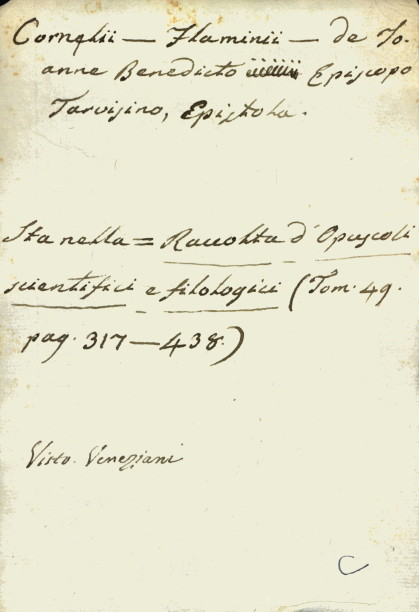 Cornelii — Flaminii — de Jo-
anne Benedicto Episcopo
Tarvisino, Epistola.
Sta nella = Raccolta d'Opuscoli
scientifici e filologici (Tom. 49.
pag. 317—438.)
Visto. Veneziani
C